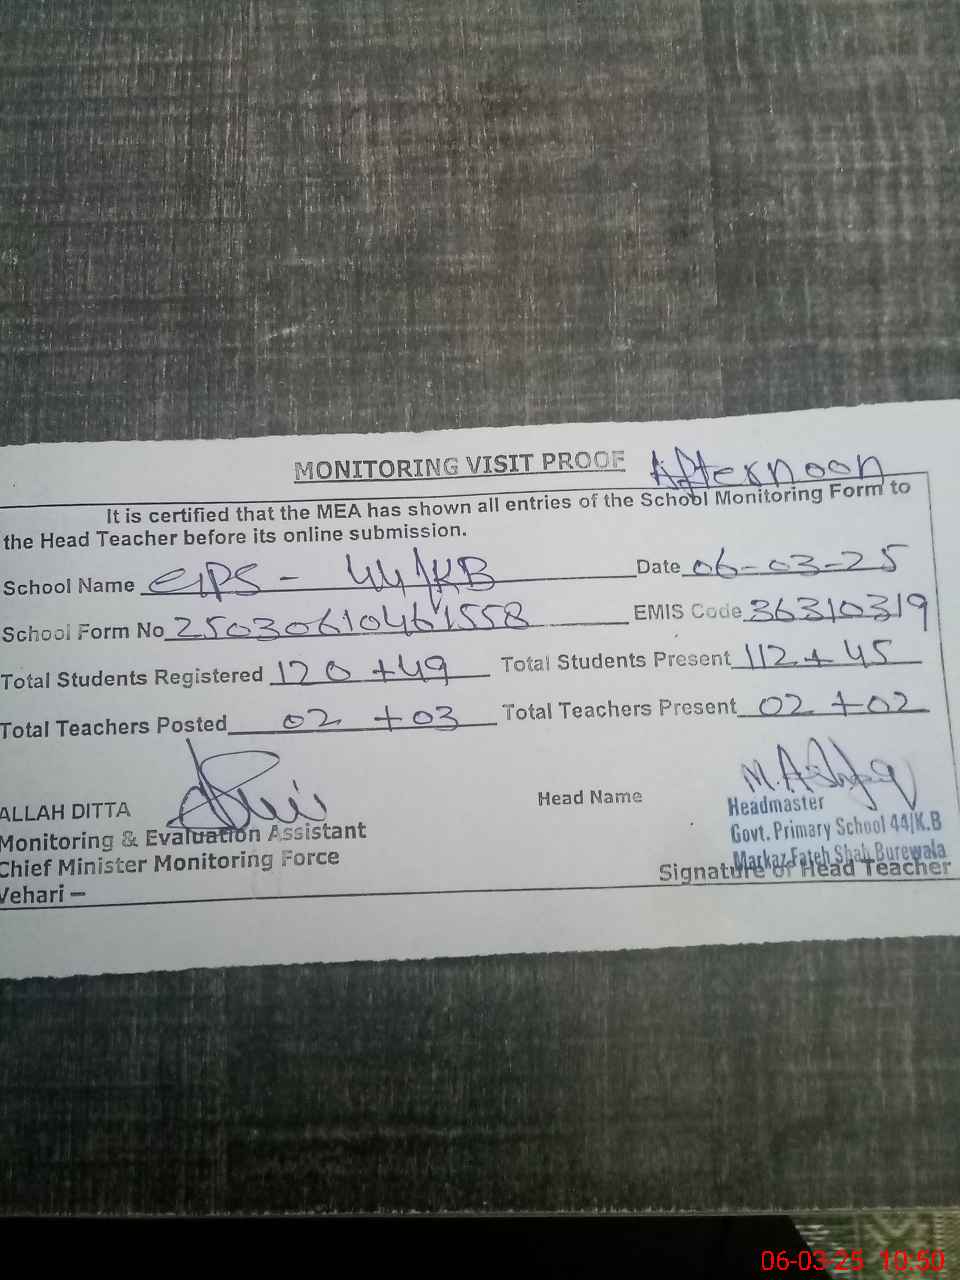 MONITORING VISIT PROOF Afternoon
It is certified that the MEA has shown all entries of the School Monitoring Form to
the Head Teacher before its online submission.
School Name GPS - 44/KB Date 06-03-25
School Form No 250306104641558 EMIS Code 36310319
Total Students Registered 120 +49 Total Students Present 112 + 45
Total Teachers Posted 02 +03 Total Teachers Present 02 +02
ALLAH DITTA
Monitoring & Evaluation Assistant
Chief Minister Monitoring Force
Vehari –
Head Name
Headmaster
Govt. Primary School 44/K.B
Markaz Fateh Shah Burewala
Signature of Head Teacher
06-03-25 10:50